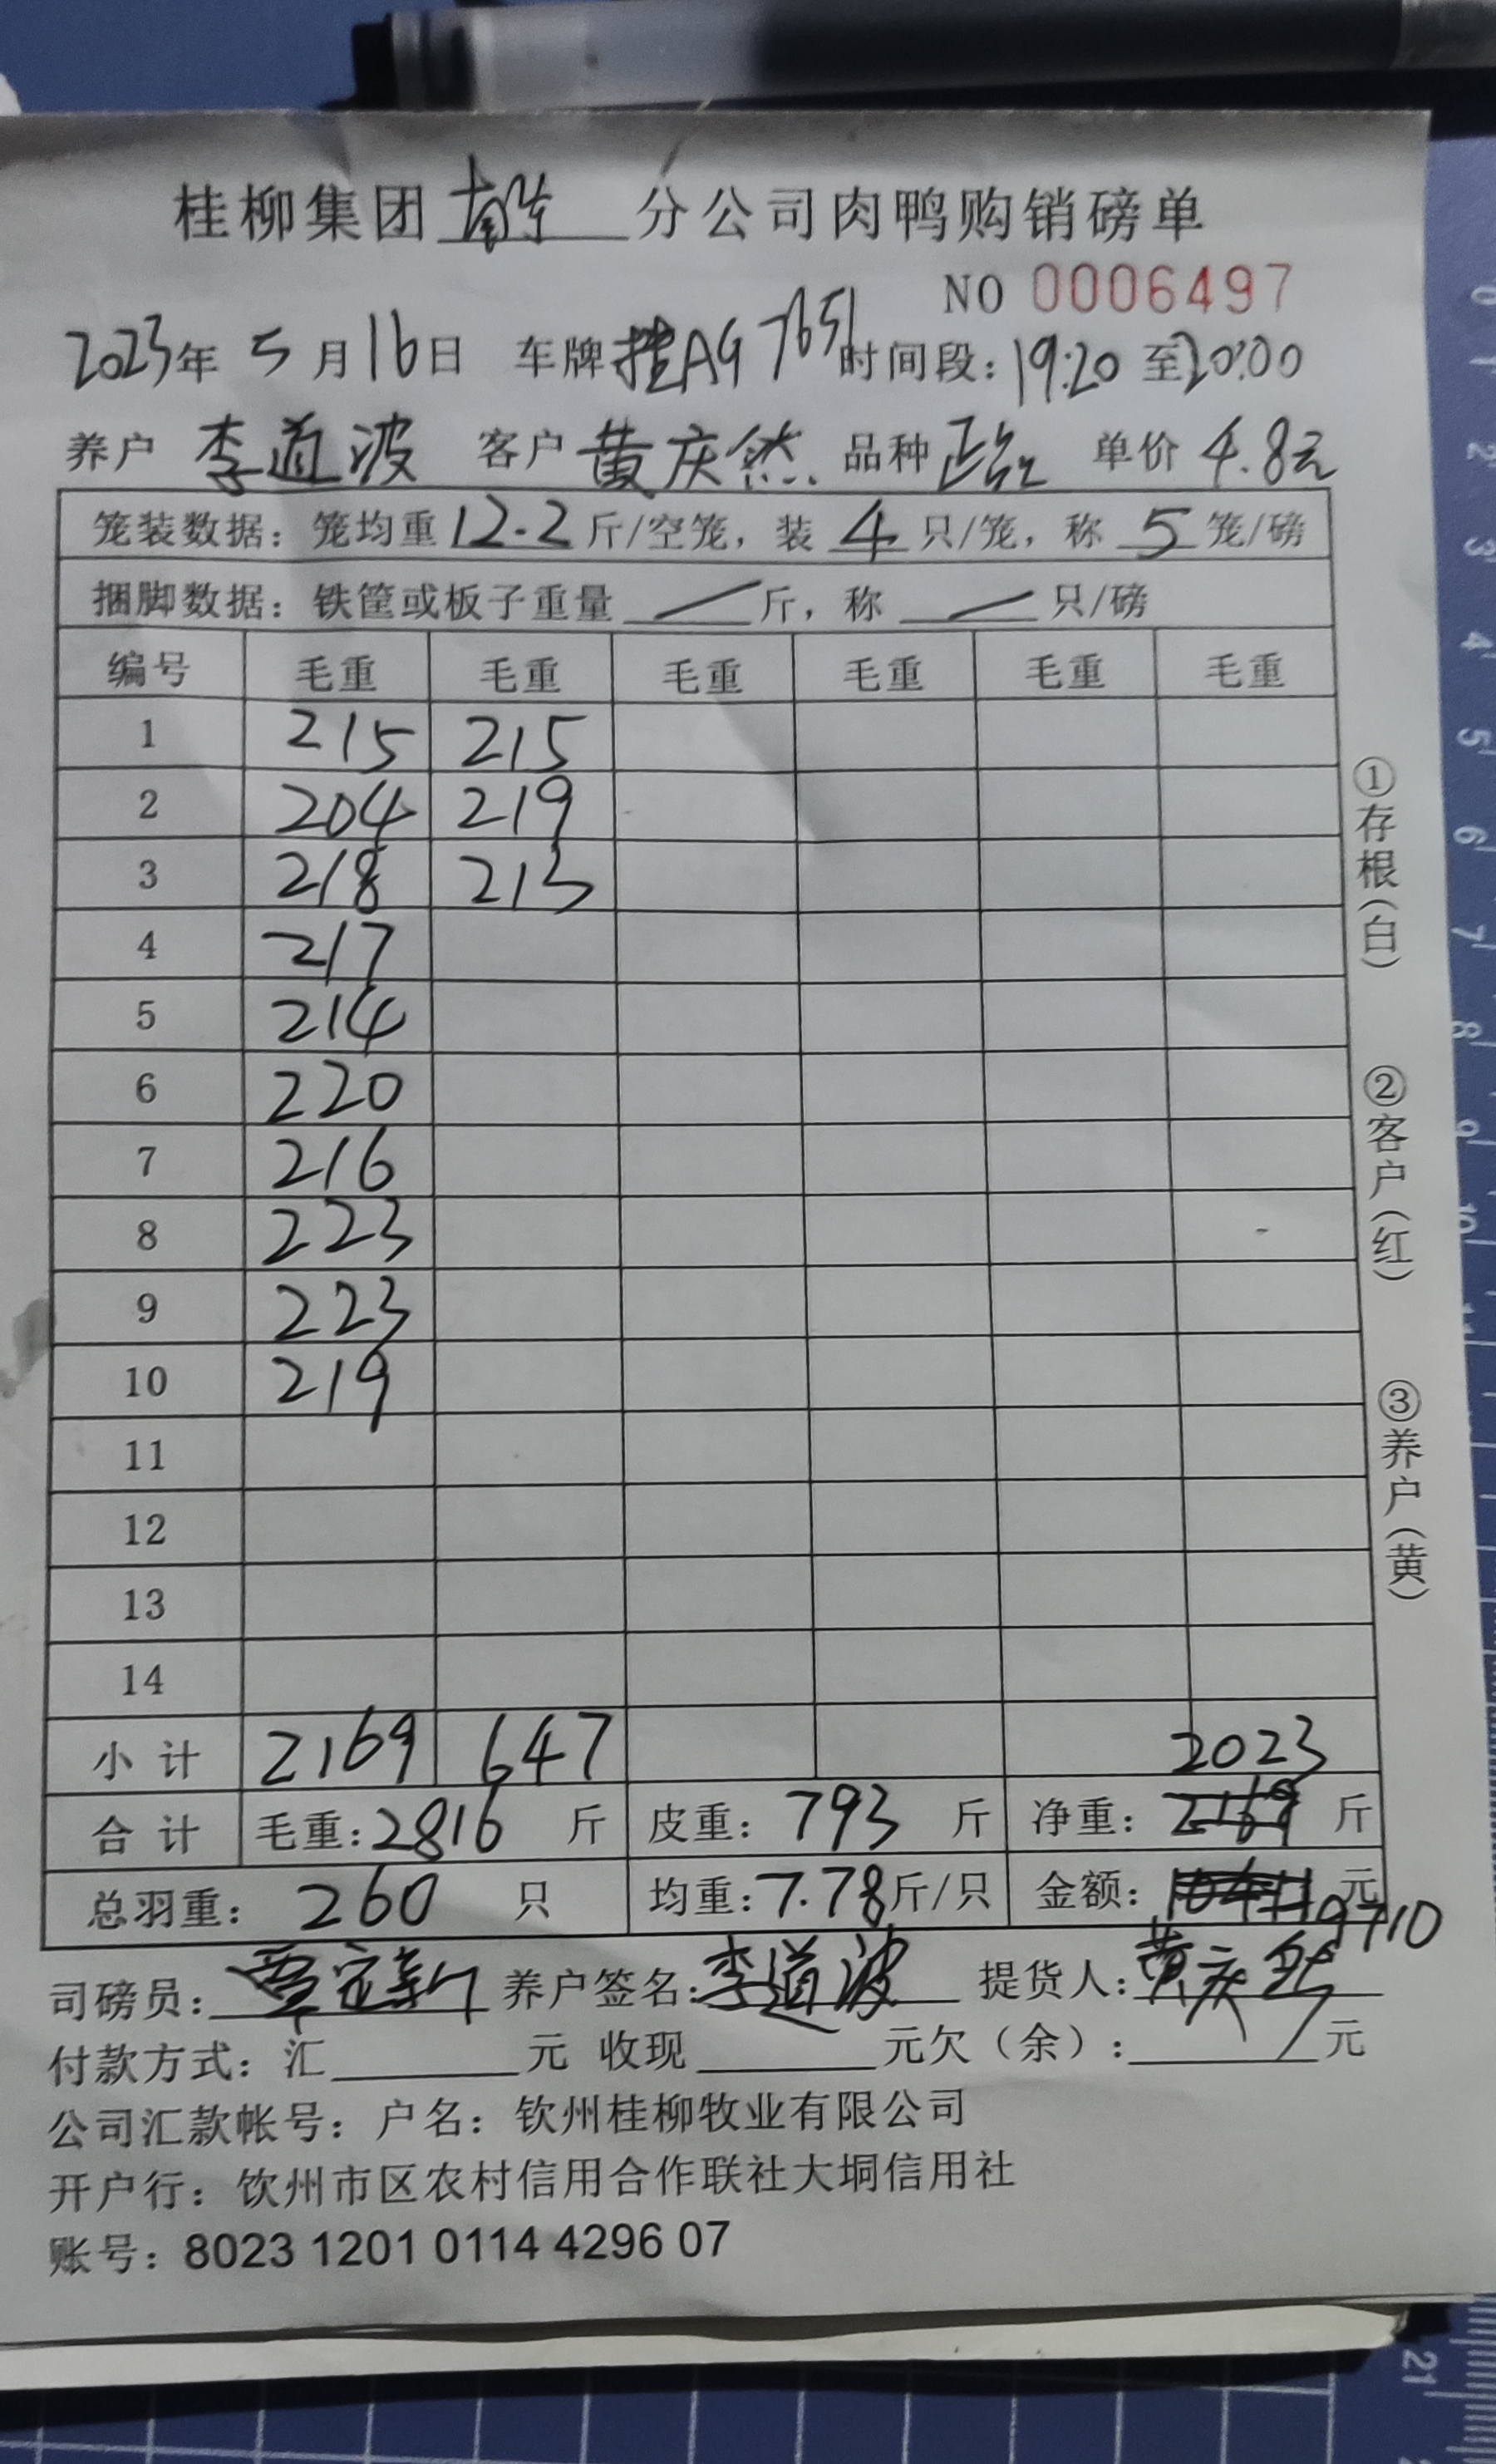 桂柳集团 分公司肉鸭购销磅单
NO 0006497
2023年 5月16日 车牌桂AG7651 时间段：19:20至20:00
养户 李道波 客户 黄庆然 品种 单价 4.8元
笼装数据：笼均重12.2斤/空笼，装 4 只/笼，称 5 笼/磅
捆脚数据：铁筐或板子重量 / 斤，称 / 只/磅
编号 毛重 毛重 毛重 毛重 毛重 毛重
1 215 215
2 204 219
3 218 213
4 217
5 214
6 220
7 216
8 223
9 223
10 219
11
12
13
14
小计 2169 647 2023
合计 毛重：2816 斤 皮重：793 斤 净重：2169 斤
总羽重：260 只 均重：7.78斤/只 金额：10411 元
9710
司磅员： 养户签名：李道波 提货人：黄庆然
付款方式：汇 元 收现 元欠（余）： / 元
公司汇款帐号：户名：钦州桂柳牧业有限公司
开户行：钦州市区农村信用合作联社大垌信用社
账号：8023 1201 0114 4296 07
①存根（白）
②客户（红）
③养户（黄）
0
1
2
3
4
5
6
7
8
9
10
11
21